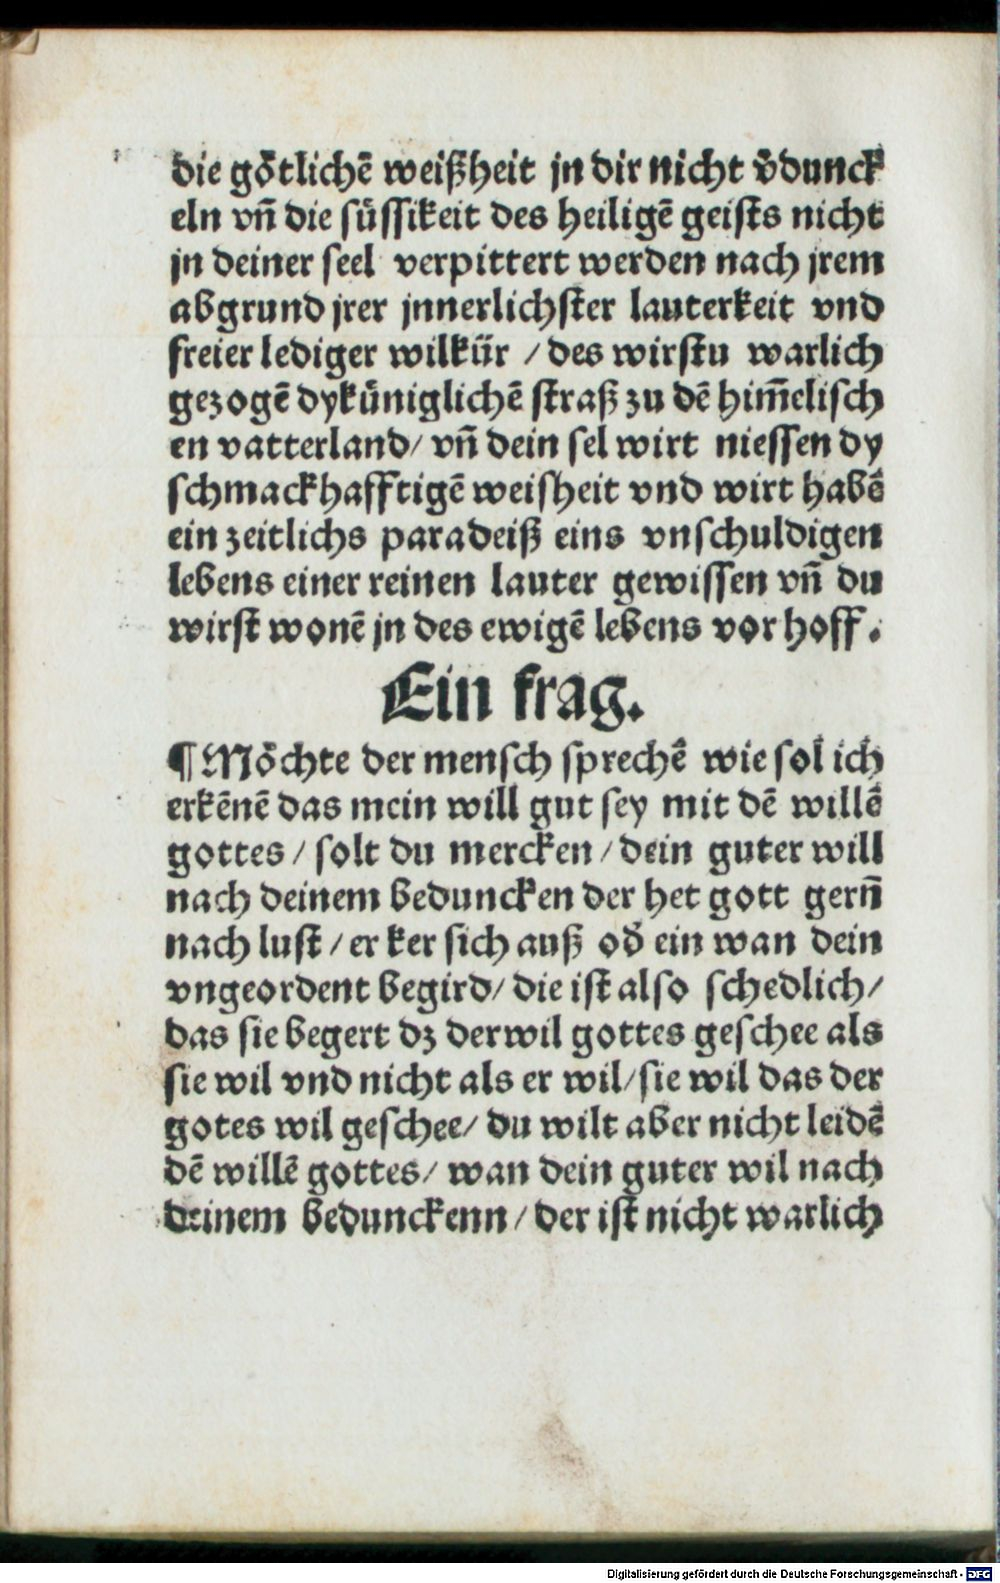 die götlichē weißheit jn dir nicht v̄dunck
eln vn̄ die süssikeit des heiligē geists nicht
jn deiner seel verpittert werden nach jrem
abgrund jrer jnnerlichster lauterkeit vnd
freier lediger wilkür / des wirstu warlich
gezogē dyküniglichē straß zu dē him̄elisch
en vatterland/ vn̄ dein sel wirt niessen dy
schmackhafftigē weisheit vnd wirt habē
ein zeitlichs paradeiß eins vnschuldigen
lebens einer reinen lauter gewissen vn̄ du
wirst wonē jn des ewigē lebens vorhoff.
Ein frag.
¶ Möchte der mensch sprechē wie sol ich
erkēnē das mein will gut sey mit dē willē
gottes / solt du mercken / dein guter will
nach deinem beduncken der het gott gern̄
nach lust / er ker sich auß od̄ ein wan dein
vngeordent begird/ die ist also schedlich/
das sie begert dz derwil gottes geschee als
sie wil vnd nicht als er wil/ sie wil das der
gotes wil geschee/ du wilt aber nicht leidē
dē willē gottes/ wan dein guter wil nach
deinem bedunckenn / der ist nicht warlich
Digitalisierung gefördert durch die Deutsche Forschungsgemeinschaft - DFG